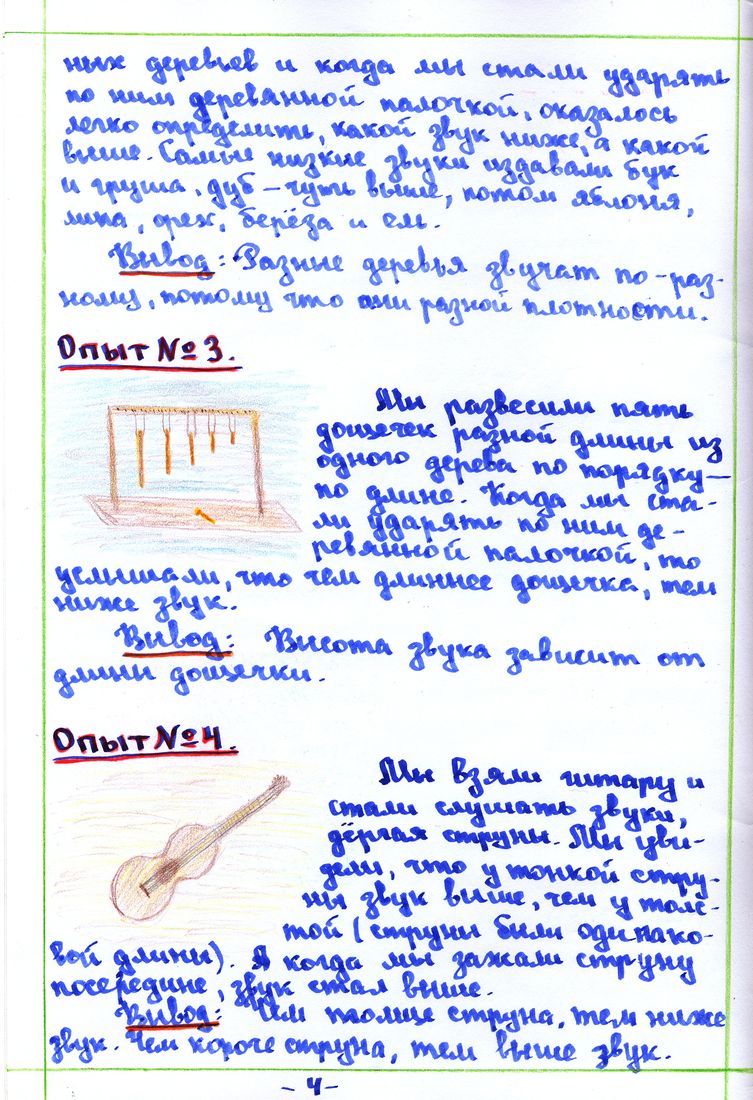 ных деревьев и когда мы стали ударять
по ним деревянной палочкой, оказалось
легко определить, какой звук ниже, а какой
выше. Самые низкие звуки издавали бук
и груша, дуб – чуть выше, потом яблоня,
липа, орех, берёза и ель.
Вывод: Разные деревья звучат по-раз-
ному, потому что они разной плотности.
Опыт № 3.
Мы развесили пять
дощечек разной длины из
одного дерева по порядку –
по длине. Когда мы ста-
ли ударять по ним де-
ревянной палочкой, то
услышали, что чем длиннее дощечка, тем
ниже звук.
Вывод: Высота звука зависит от
длины дощечки.
Опыт № 4.
Мы взяли гитару и
стали слушать звуки,
дёргая струны. Мы уви-
дели, что у тонкой стру-
ны звук выше, чем у толс-
той (струны были одинако-
вой длины). А когда мы зажали струну
посередине, звук стал выше.
Вывод: Чем толще струна, тем ниже
звук. Чем короче струна, тем выше звук.
- 4 -